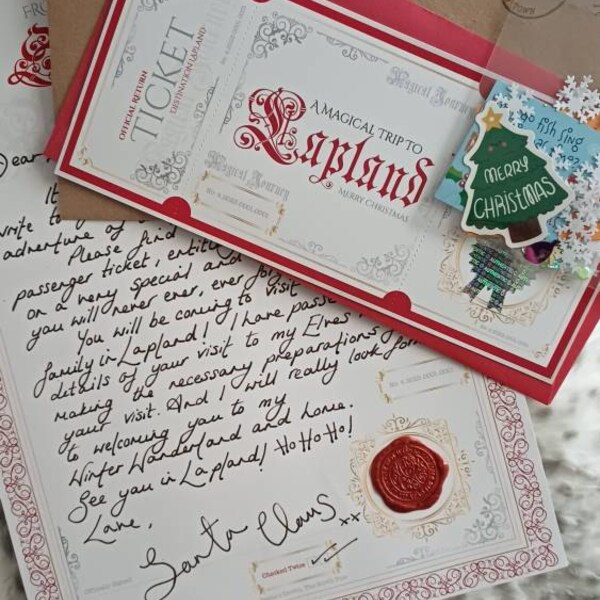 FRO
OFFICIAL RETURN
TICKET
DESTINATION LAPLAND
Magical Journey
A MAGICAL TRIP TO
Lapland
MERRY CHRISTMAS
Magical Journey
MERRY
CHRISTMAS
fish sing
Dear
It
write to
adventure of
Please find
passenger ticket, entitl
on a very special and
you will never ever, ever for
You will be coming to visit
family in Lapland! I have passe
details of your visit to my Elves
making the necessary preparations
your visit. And I will really look for
to welcoming you to my
Winter Wonderland and home.
See you in Lapland! HoHoHo!
Love,
Santa Claus xx
Checked Twice